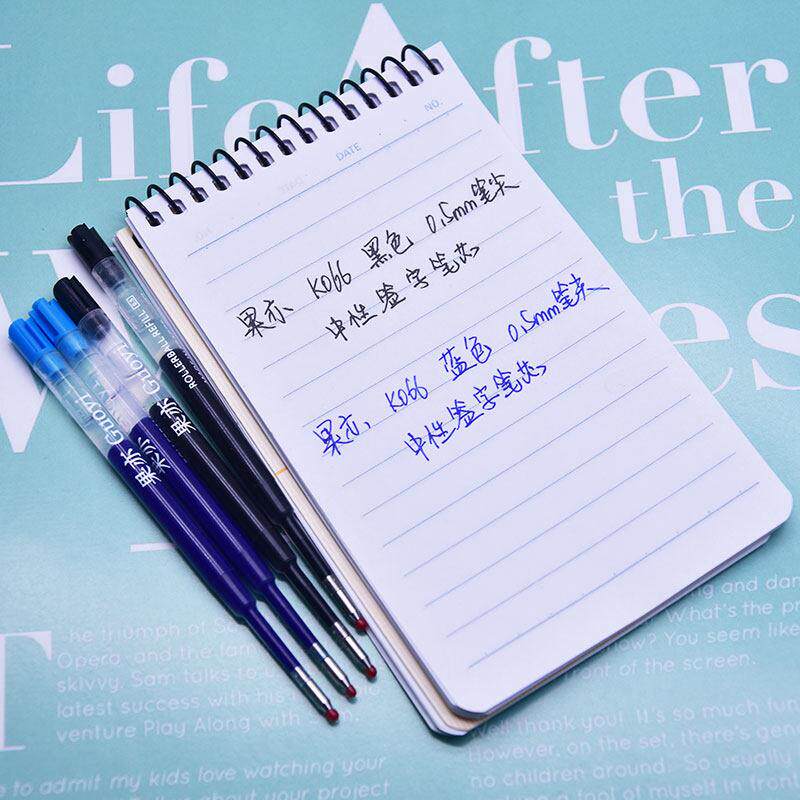 Life After
the
NO.
DATE
果亦 K066 黑色 0.5mm笔尖
中性签字笔芯
果亦 K066 蓝色 0.5mm笔尖
中性签字笔芯
果亦 Guoyi
果亦 Guoyi
ROLLERBALL REFILL
The triumph of
Opera and the
skivvy. Sam talks to
latest success with his
venture Play Along with
to admit my kids love watching your
and dan
What's the pr
You seem like
front of the screen.
Well thank you! It's so much fun
However, on the set, there's gene
no children around. So usually
a fool of myself in front